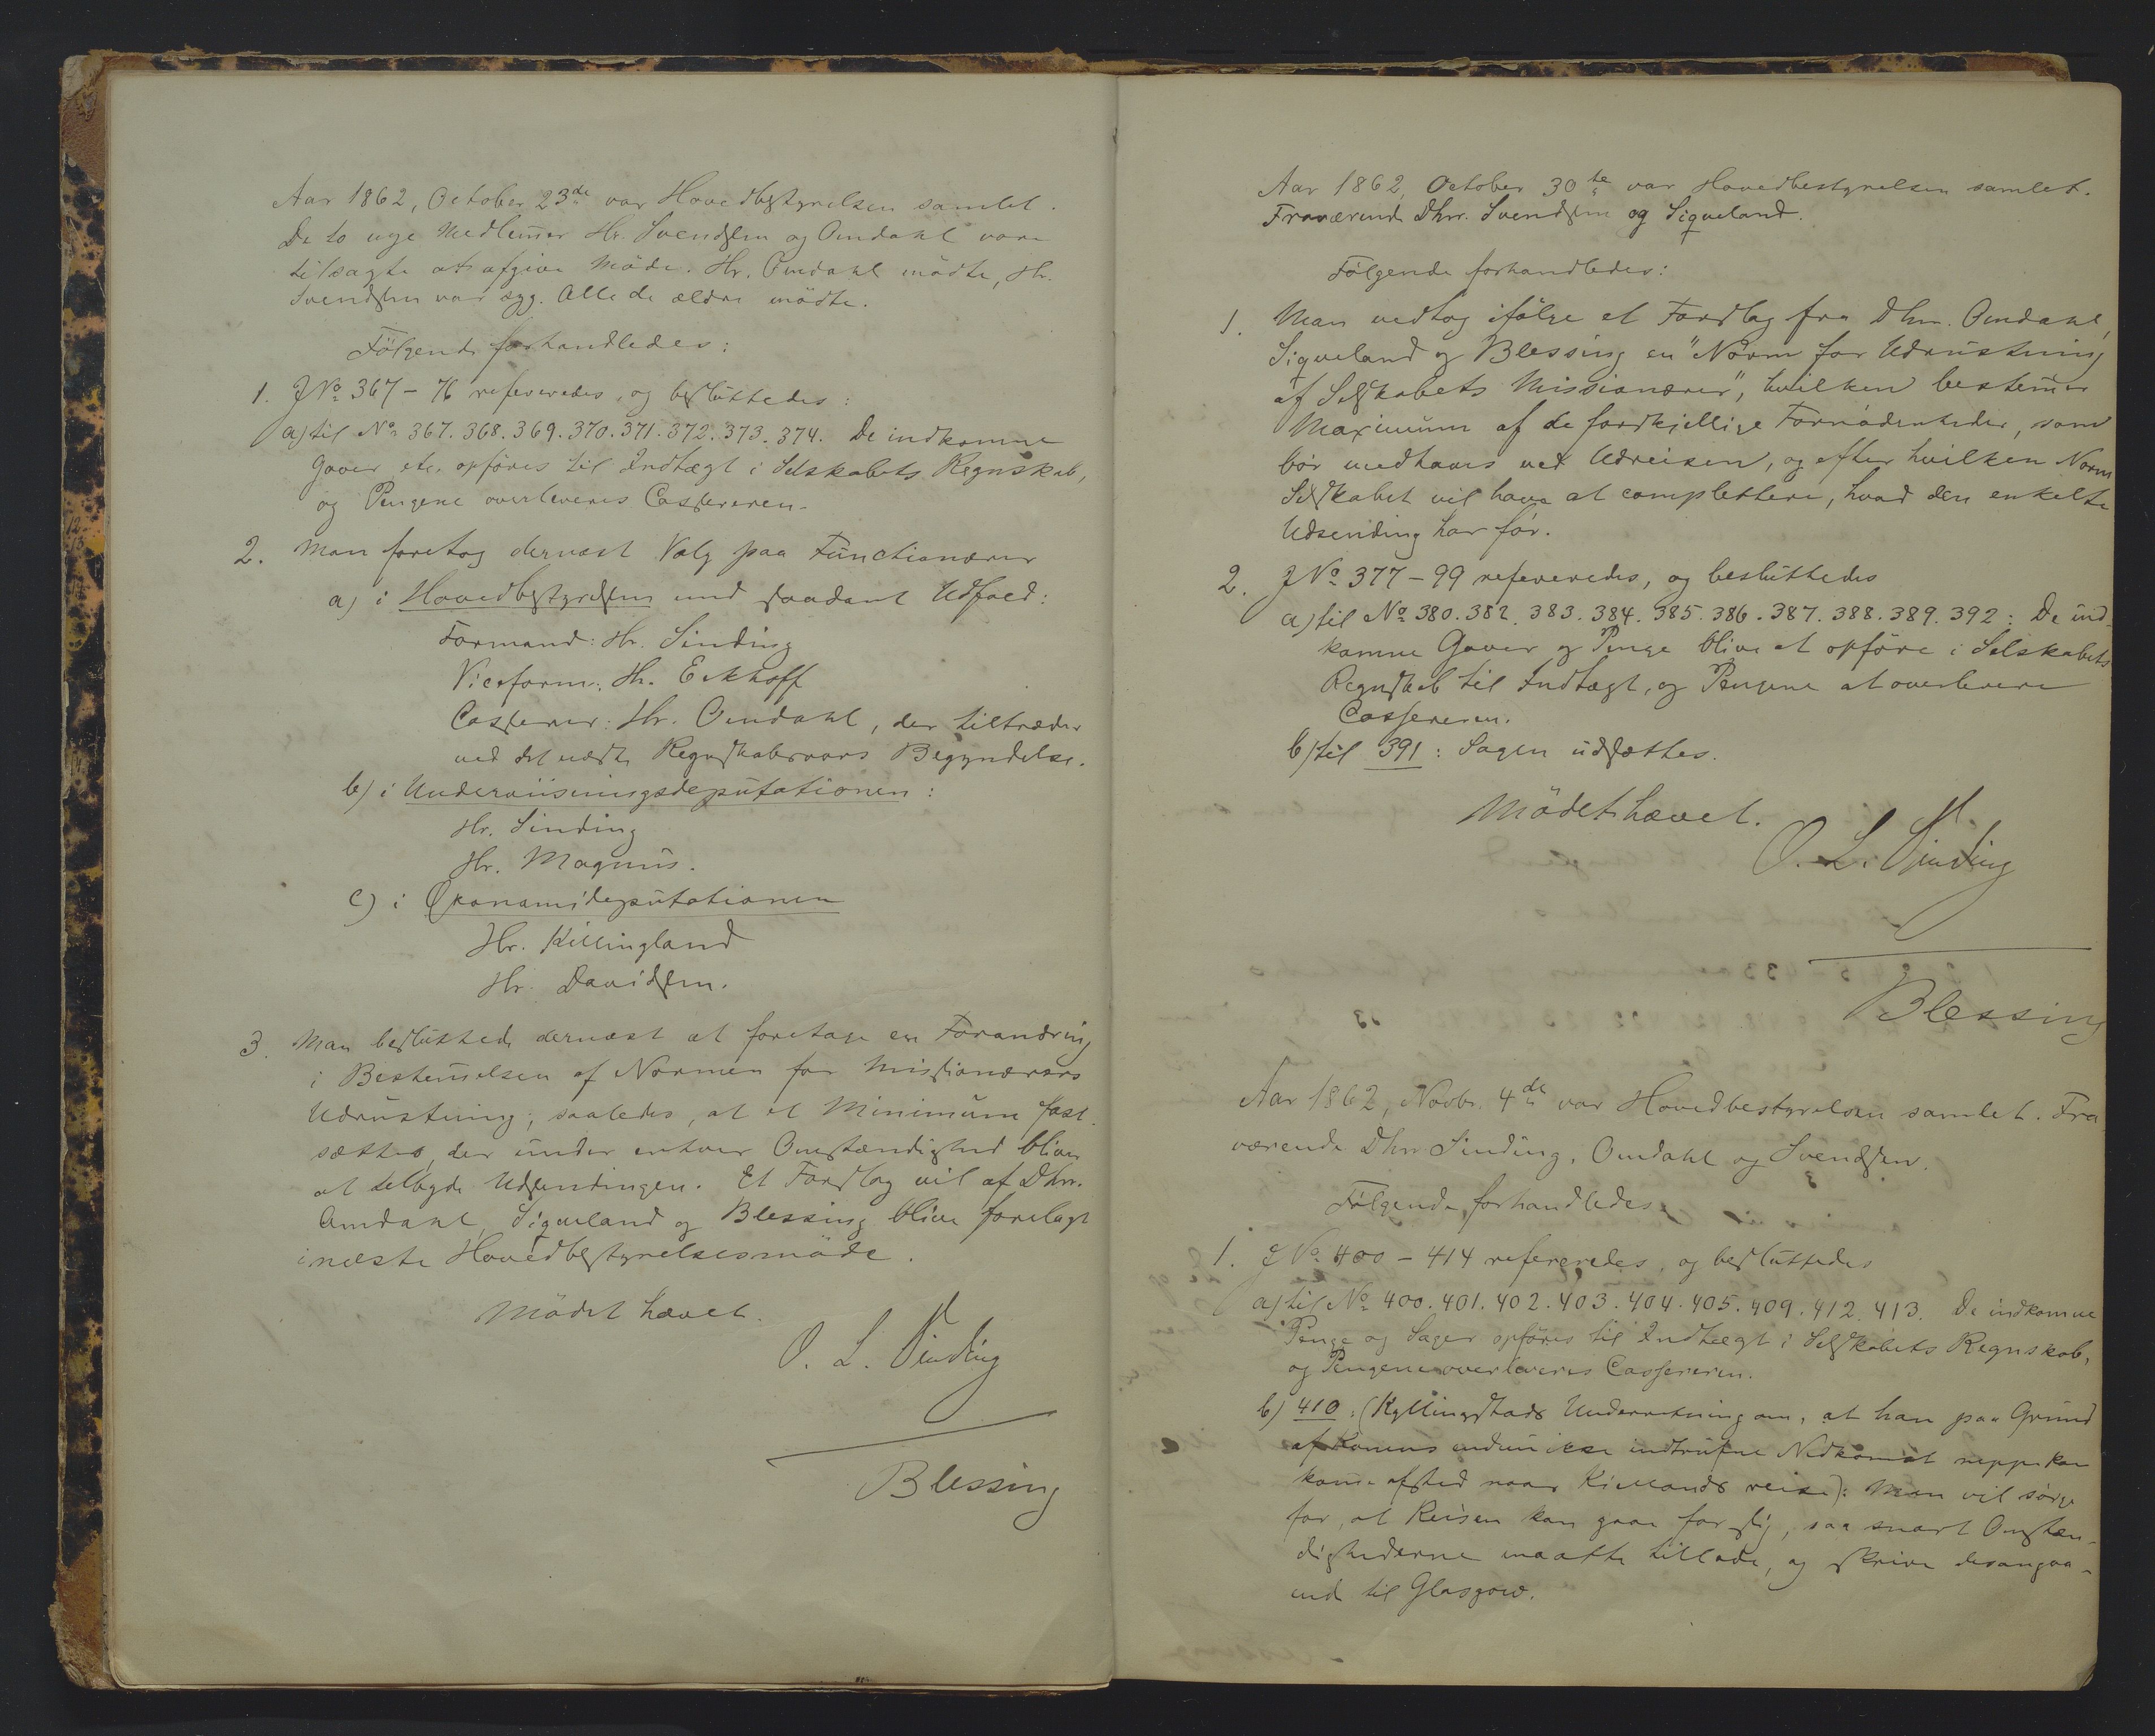 Aar 1862, October 23de var Hovedbestyrelsen samlet.
De to nye Medlemer Hr. Svendsen og Omdahl vare
tilsagte at afgive Möde. Hr. Omdahl mödte, Hr.
Svendsen var syg. Alle de ældre mödte.
Fölgende forhandledes:
1. J No 367 – 76 refereredes, og besluttedes:
a) til No 367. 368. 369. 370. 371. 372. 373. 374. De indkomne
Gaver etc. opföres til Indtægt i Selskabets Regnskab,
og Pengene overleveres Cassereren.
2. Man foretog dernæst Valg paa Functionærer
a) i Hovedbestyrelsen med saadant Udfald:
Formand: Hr. Sinding
Viceform: Hr. Eckhoff
Casserer: Hr. Omdahl, der tiltræder
ved det næste Regnskabsaars Begyndelse.
b) i Underviisningsdeputationen:
Hr. Sinding
Hr. Magnus.
c) i Økonomideputationen
Hr. Killingland
Hr. Davidsen.
3. Man besluttede dernæst at foretage en Forandring
i Bestemelsen af Normen for Missionærers
Udrustning, saaledes, at et Minimum fast-
sættes, der under enhver Omstændighed bliver
at tilbyde Udsendingen. Et Forslag vil af Dhrr.
Omdahl, Siqveland og Blessing blive forelagt
i næste Hovedbestyrelsesmöde.
Mödet hævet.
O. L. Sinding
Blessing
Aar 1862, October 30te var Hovedbestyrelsen samlet.
Fraværende Dhrr. Svendsen og Siqveland.
Fölgende forhandledes:
1. Man vedtog ifölge et Forslag fra Dhrr. Omdahl,
Siqveland og Blessing en "Norm for Udrustning
af Selskabets Missionærer", hvilken bestemer
Maximum af de forskjellige Fornödenheder, som
bör medhaves ved Udreisen, og efter hvilken Norm
Selskabet vil have at complettere, hvad den enkelte
Udsending har för.
2. J No 377 – 99 refereredes, og besluttedes
a) til No 380. 382. 383. 384. 385. 386. 387. 388. 389. 392: De ind-
komne Gaver og Penge blive at opföre i Selskabets
Regnskab til Indtægt, og Pengene at overlevere
Cassereren.
b) til 391: Sagen udsættes.
Mödet hævet.
O. L. Sinding
Blessing
Aar 1862, Novbr. 4de var Hovedbestyrelsen samlet. Fra-
værende Dhrr Sinding, Omdahl og Svendsen.
Fölgende forhandledes
1. J No 400 – 414 refereredes, og besluttedes
a) til No 400. 401. 402. 403. 404. 405. 409. 412. 413. De indkomne
Penge og Sager opföres til Indtægt i Selskabets Regnskab,
og Pengene overleveres Cassereren.
b) 410: (Kyllingstads Underretning om, at han paa Grund
af Konens endnu ikke indtrufne Nedkomst neppe kan
kome afsted naar Kiellands reise): Man vil sörge
for, at Reisen kan gaae for sig, saa snart Omstæn-
dighederne maatte tillade, og skrive desangaa-
ende til Glasgow.